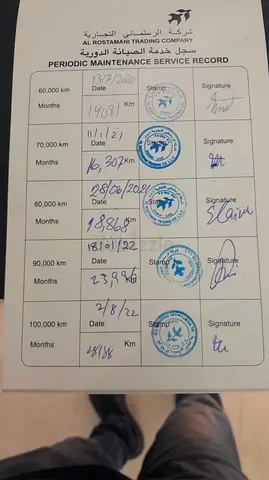 شركة الرستماني التجارية
AL ROSTAMANI TRADING COMPANY
سجل خدمة الصيانة الدورية
PERIODIC MAINTENANCE SERVICE RECORD
60,000 km 13/7/2020
Date Stamp Signature
Months 14081 Km
70,000 km 11/1/21
Date Stamp Signature
Months 16,307 Km
80,000 km 28/06/2021
Date Stamp Signature
Months 18,868 Km
90,000 km 18/01/22
Date Stamp Signature
Months Km
100,000 km 2/8/22
Date Stamp Signature
Months Km